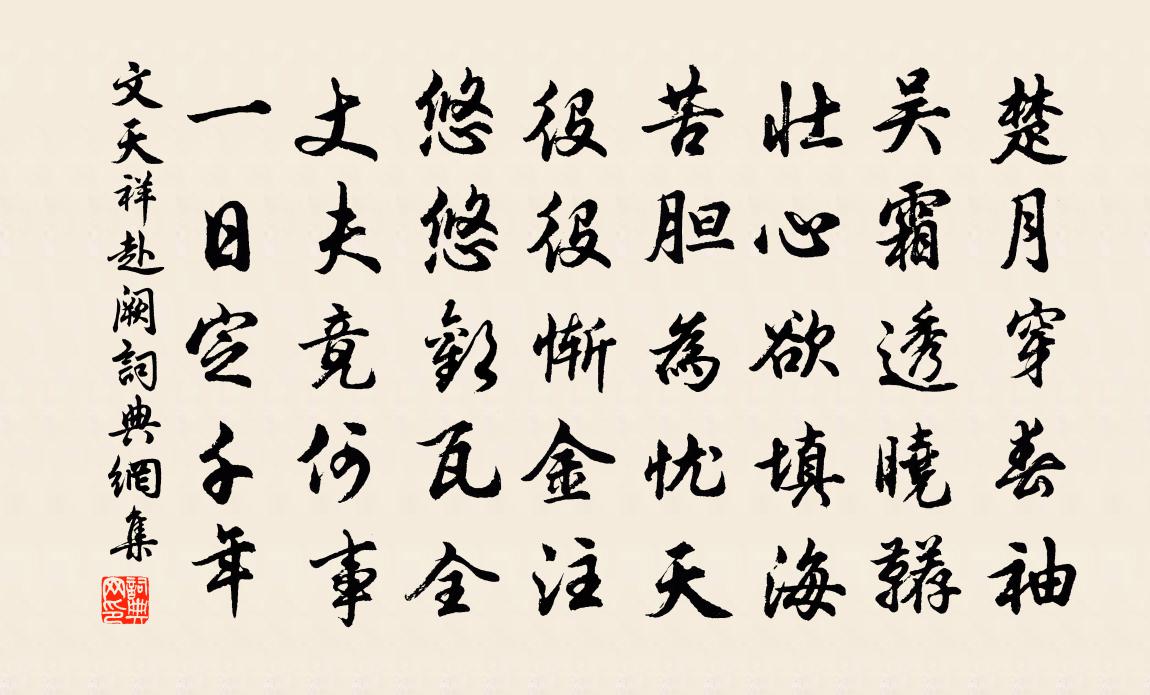 楚月穿春袖
吴霜透曉鞯
壮心欲填海
苦胆為忧天
役役惭金注
悠悠歎瓦全
丈夫竟何事
一日定千年
文天祥赴阙詞典網集
詞典网印